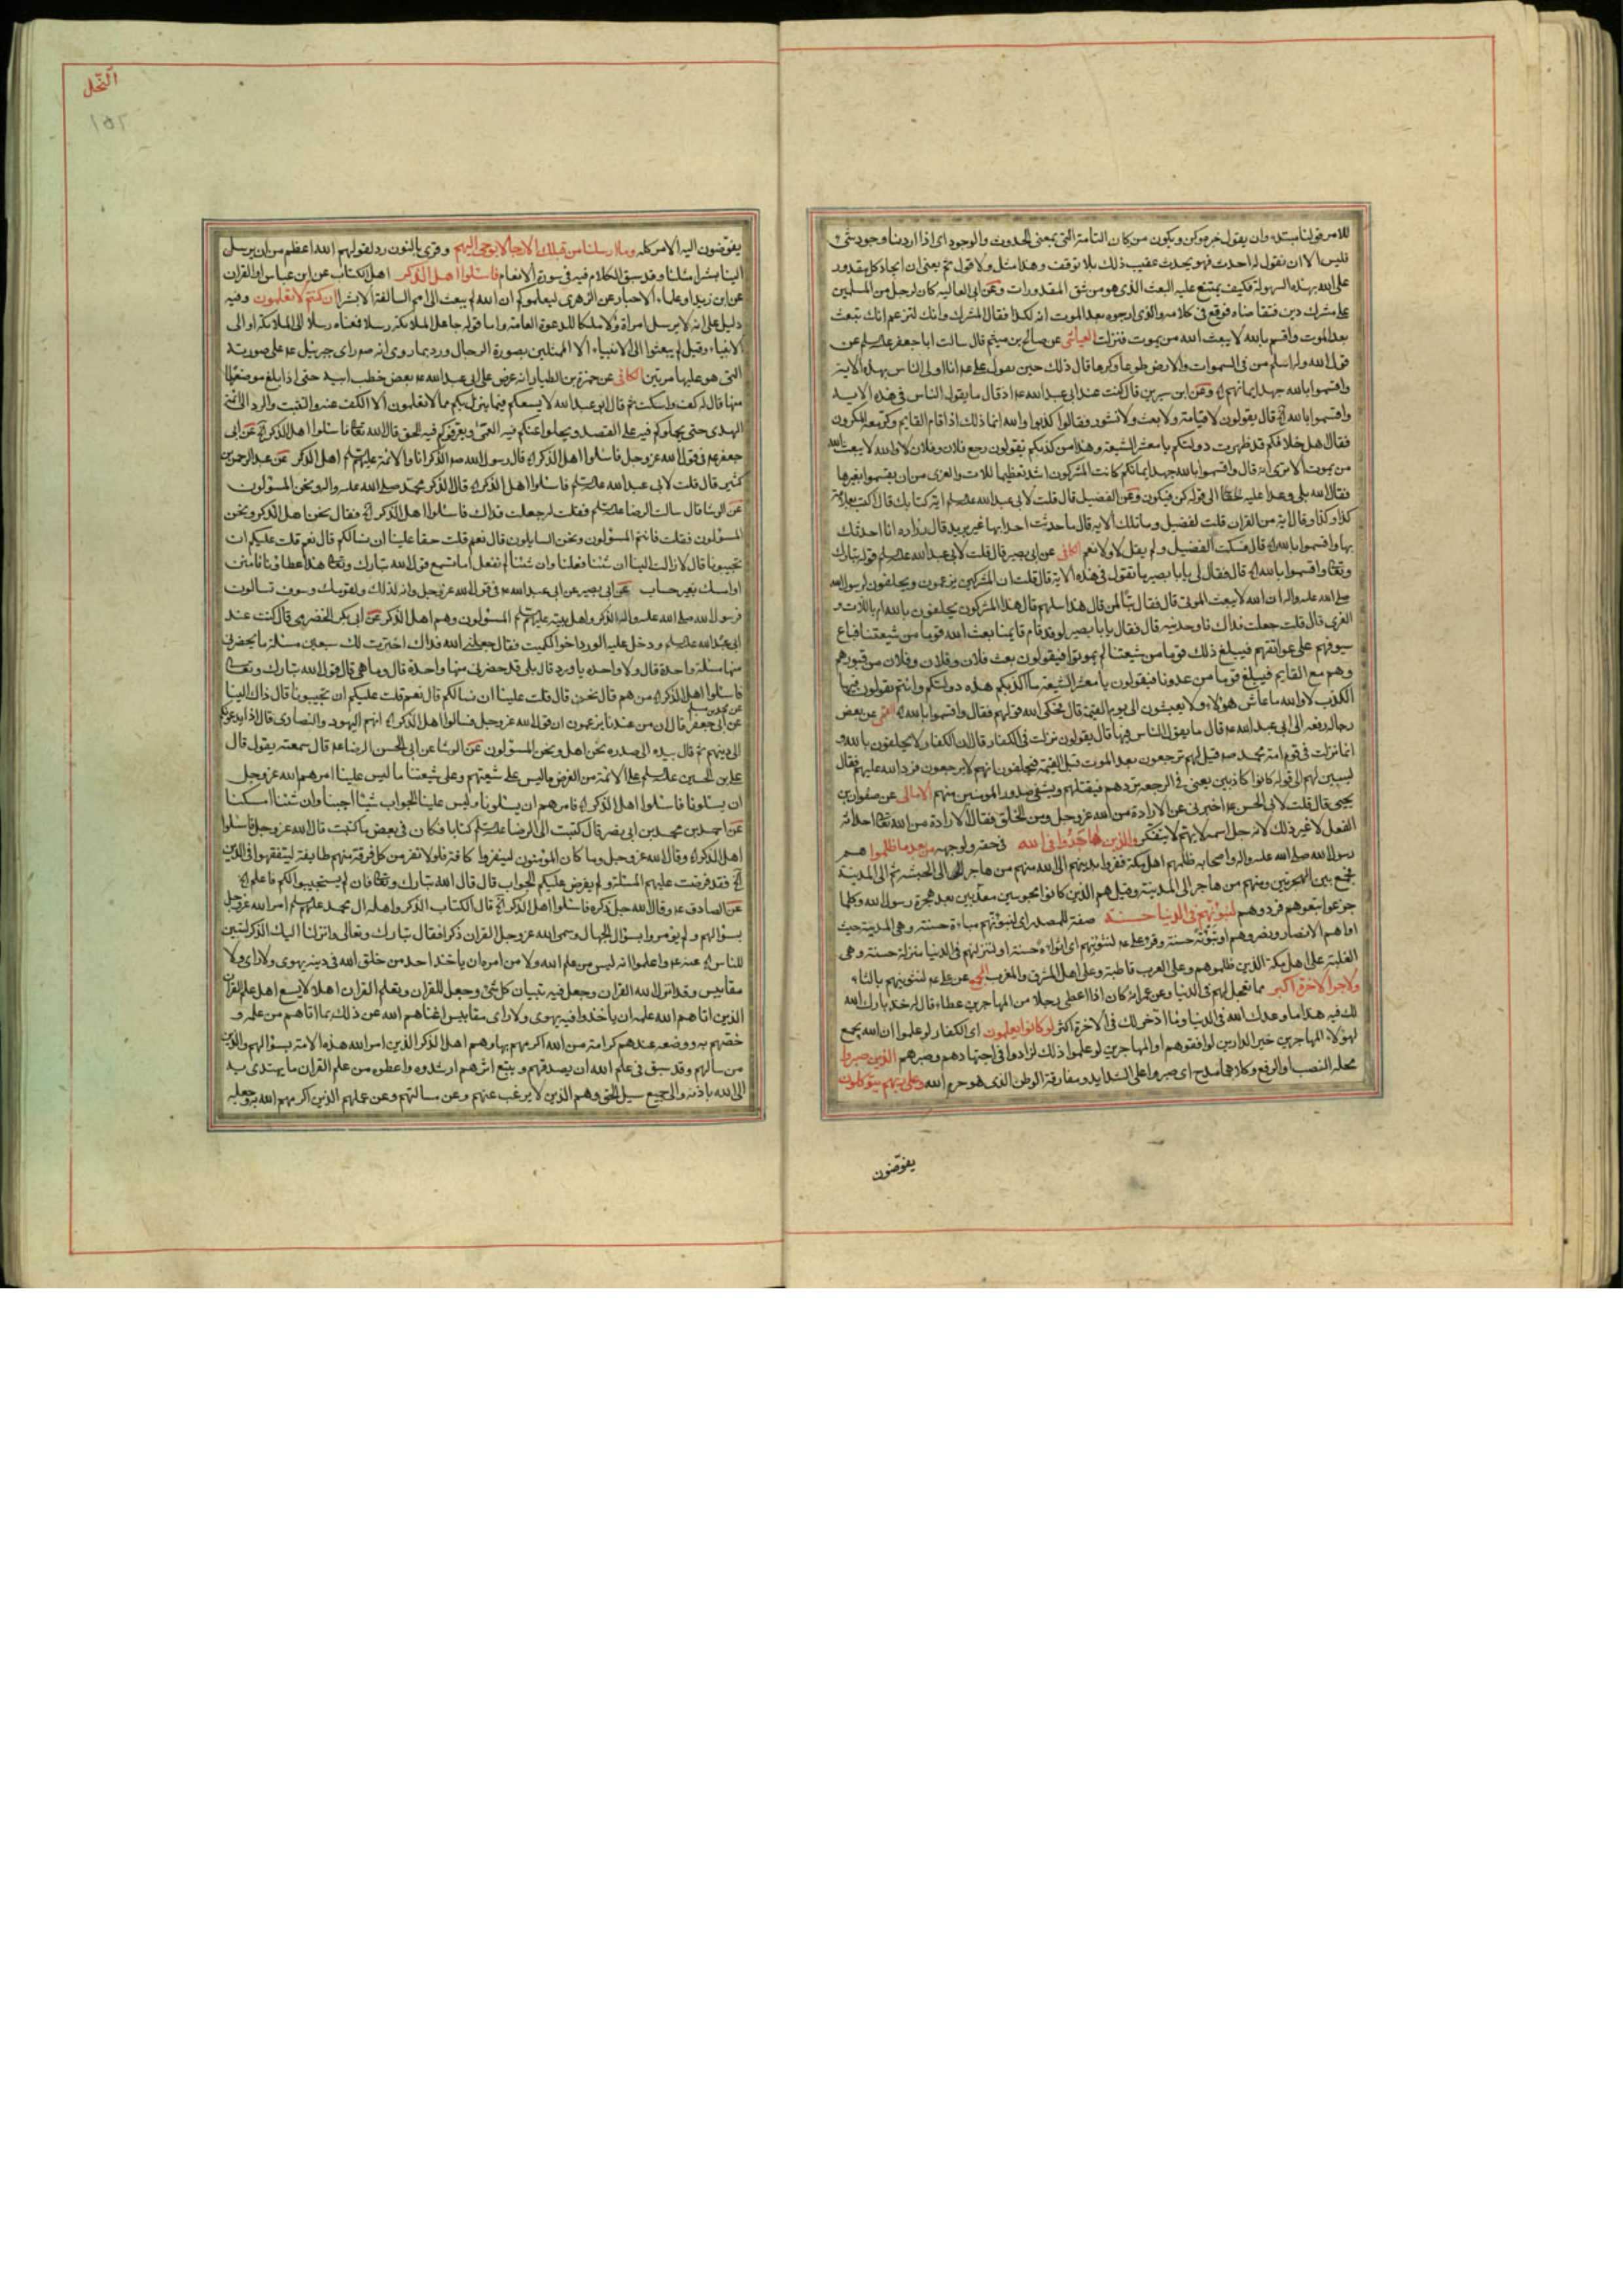 للامر قولنا مبتدء وان يقول خبره وكن ويكون من كان التامة التى بمعنى الحدوث والوجود اى اذا اردنا وجود شىء
فليس الا ان نقول له احدث فهو يحدث عقيب ذلك بلا توقف وهذا مثل ولا قول ثم يعنى ان ايجاد كل مقدور
على الله بهذه السهولة فكيف يمتنع عليه البعث الذى هو من شق المقدورات وعن ابى العاليه كان لرجل من المسلمين
على مشرك دين فتقاضاه فوقع فى كلامه والذى ارجوه بعد الموت انه لكذا فقال المشرك وانك لتزعم انك تبعث
بعد الموت واقسم بالله لا يبعث الله من يموت فنزلت العياشى عن صالح بن ميثم قال سالت ابا جعفر عن
قول الله وله اسلم من فى السموات والارض طوعا وكرها قال ذلك حين يقول على عم انا اولى الناس بهذه الاية
واقسموا بالله جهد ايمانهم وعن ابن سيرين قال كنت عند ابى عبد الله عم اذ قال ما يقول الناس فى هذه الايه
واقسموا بالله قال يقولون لا قيامة ولا بعث ولا نشور فقال كذبوا والله انما ذلك اذا قام القايم وكر معه المكرون
فقال اهل خلافكم قد ظهرت دولتكم يا معشر الشيعة وهذا من كذبكم يقولون رجع فلان وفلان وفلان لا والله لا يبعث الله
من يموت الا ترى انه قال واقسموا بالله جهد ايمانهم كانت المشركون اشد تعظيما للات والعزى من ان يقسموا بغيرها
فقال الله بلى وعدا عليه حقا الى قوله كن فيكون وعن الفضيل قال قلت لابى عبد الله
كذا وكذا وقال اية من القران قلت لفضيل وما تلك الايه قال ما حدثت احدا بها غير بريد قال زراره انا احدثك
بها واقسموا بالله قال فسكت الفضيل ولم يقل لا ولا نعم الكافى عن ابى بصير قال قلت لابى عبد الله قوله تبارك
وتعالى واقسموا بالله قال فقال لى يا با بصير ما تقول فى هذه الاية قال قلت ان المشركين يزعمون ويحلفون لرسول الله
صلى الله عليه واله ان الله لا يبعث الموتى قال فقال تبا لمن قال هذا سلهم قال هذا المشركون يحلفون بالله ام باللات و
العزى قال قلت جعلت فداك فاوجدنيه قال فقال يا با بصير لو قد قام قايمنا بعث الله قوما من شيعتنا قباع
سيوفهم على عواتقهم فيبلغ ذلك قوما من شيعتنا لم يموتوا فيقولون بعث فلان وفلان وفلان من قبورهم
وهم مع القايم فيبلغ قوما من عدونا فيقولون يا معشر الشيعة ما اكذبكم هذه دولتكم وانتم تقولون فيها
الكذب لا والله ما عاش هؤلاء ولا يعيشون الى يوم القيمة قال فحكى الله قولهم فقال واقسموا بالله القمى عن بعض
رجاله رفعه الى ابى عبد الله عم قال ما يقول الناس فيها قال يقولون نزلت فى الكفار قال ان الكفار لا يحلفون بالله و
انما نزلت فى قوم امة محمد صم قيل لهم ترجعون بعد الموت قبل القيمة فيحلفون انهم لا يرجعون فرد الله عليهم فقال
ليبين لهم الى قوله كانوا كاذبين يعنى فى الرجعة يردهم فيقتلهم ويشفى صدور المومنين منهم الامالى عن صفوان بن
يحيى قال قلت لابى الحسن عم اخبرنى عن الارادة من الله عز وجل ومن الخلق فقال الارادة من الله تعالى احداثه
الفعل لا غير ذلك لانه جل اسمه لا يهم لا يتفكر والذين هاجروا فى الله فى حقه ولوجهه من بعد ما ظلموا هم
رسول الله صلى الله عليه واله واصحابه ظلمهم اهل مكة ففروا بدينهم الى الله منهم من هاجر الى الحبشه ثم الى المدينة
فجمع بين الهجرتين ومنهم من هاجر الى المدينة وقيل هم الذين كانوا محبوسين معذبين بعد هجرة رسول الله وكلما
خرجوا تبعوهم فردوهم لنبوئنهم فى الدنيا حسنة صفة للمصدر اى لنبوئنهم مباءة حسنة وهى المدينة حيث
اواهم الانصار ونصروهم او تبوئة حسنة وقرء على عم لنثوينهم اى اثواءة حسنة او لننزلنهم فى الدنيا منزلة حسنة وهى
الغلبة على اهل مكة الذين ظلموهم وعلى العرب قاطبة وعلى اهل المشرق والمغرب عن على عم لنثوينهم بالثاء
ولاجر الاخرة اكبر مما تعجل لهم فى الدنيا وعن عمر انه كان اذا اعطى رجلا من المهاجرين عطاء قال له خذ بارك الله
لك فيه هذا ما وعدك الله فى الدنيا وما ادخر لك فى الاخرة اكثر لو كانوا يعلمون اى الكفار لو علموا ان الله يجمع
لهؤلاء المهاجرين خير الدارين لوافقوهم او المهاجرين لو علموا ذلك لزادوا فى اجتهادهم وصبرهم الذين صبروا
محله النصب او الرفع وكلاهما مدح اى صبروا على الشدايد ومفارقة الوطن الذى هو حرم الله وعلى ربهم يتوكلون
يفوضون
النحل
١٥٢
يفوضون اليه الامر كله وما ارسلنا من قبلك الا رجالا نوحى اليهم وقرى بالنون رد لقولهم الله اعظم من ان يرسل
الينا بشرا مثلنا وقد سبق الكلام فيه فى سورة الانعام فاسئلوا اهل الذكر اهل الكتاب عن ابن عباس او القران
عن ابن زيد او علماء الاحبار عن الزهرى ليعلموكم ان الله لم يبعث الى الامم السالفة الا بشرا ان كنتم لا تعلمون وفيه
دليل على انه لا يرسل امراة ولا ملكا للدعوة العامة واما قوله جاعل الملائكة رسلا فمعناه رسلا الى الملائكة او الى
الانبياء وقيل لم يبعثوا الى الانبياء الا ممثلين بصورة الرجال ورد بما روى انه صم راى جبرئيل عم على صورته
التى هو عليها مرتين الكافى عن حمزة بن الطيار انه عرض على ابى عبد الله عم بعض خطب ابيه حتى اذا بلغ موضعا
منها قال له كف واسكت ثم قال ابو عبد الله لا يسعكم فيما ينزل بكم مما لا تعلمون الا الكف عنه والتثبت والرد الى ائمة
الهدى حتى يحملوكم فيه على القصد ويجلوا عنكم فيه العمى ويعرفوكم فيه الحق قال الله تعالى فاسئلوا اهل الذكر عن ابى
جعفر عم فى قول الله عز وجل فاسئلوا اهل الذكر قال رسول الله صم الذكر انا والائمة عليهم اهل الذكر عن عبد الرحمن بن
كثير قال قلت لابى عبد الله فاسئلوا اهل الذكر قال الذكر محمد صلى الله عليه واله ونحن المسؤلون
عن الوشا قال سالت الرضا فقلت له جعلت فداك فاسئلوا اهل الذكر فقال نحن اهل الذكر ونحن
المسؤلون فقلت فانتم المسؤلون ونحن السايلون قال نعم قلت حقا علينا ان نسالكم قال نعم قلت عليكم ان
تجيبونا قال لا ذاك الينا ان شئنا فعلنا وان شئنا لم نفعل اما تسمع قول الله تبارك وتعالى هذا عطاؤنا فامنن
او امسك بغير حساب عن ابى بصير عن ابى عبد الله عم فى قول الله عز وجل وانه لذكر لك ولقومك وسوف تسالون
فرسول الله صلى الله عليه واله الذكر واهل بيته عليهم المسؤلون وهم اهل الذكر عن ابى بكر الحضرمى قال كنت عند
ابى عبد الله ودخل عليه الورد اخو الكميت فقال جعلنى الله فداك اخترت لك سبعين مسئلة ما يحضرنى
منها مسئلة واحدة قال ولا واحده يا ورد قال بلى قد حضرنى منها واحدة قال وما هى قال قول الله تبارك وتعالى
فاسئلوا اهل الذكر من هم قال نحن قال قلت علينا ان نسالكم قال نعم قلت عليكم ان تجيبونا قال ذاك الينا
عن محمد بن مسلم
عن ابى جعفر قال ان من عندنا يزعمون ان قول الله عز وجل فسالوا اهل الذكر انهم اليهود والنصارى قال اذا يدعوكم
الى دينهم ثم قال بيده الى صدره نحن اهل ونحن المسؤلون عن الوشا عن ابى الحسن الرضا عم قال سمعته يقول قال
على بن الحسين على الائمة من الفرض ما ليس على شيعتهم وعلى شيعتنا ما ليس علينا امرهم الله عز وجل
ان يسئلونا فاسئلوا اهل الذكر فامرهم ان يسئلونا وليس علينا الجواب شئنا اجبنا وان شئنا امسكنا
عن احمد بن محمد بن ابى نصر قال كتبت الى الرضا كتابا فكان فى بعض ما كتبت قال الله عز وجل فاسئلوا
اهل الذكر وقال الله عز وجل وما كان المؤمنون لينفروا كافة فلولا نفر من كل فرقة منهم طايفة ليتفقهوا فى الدين
فقد فرضت عليهم المسئلة ولم يفرض عليكم الجواب قال قال الله تبارك وتعالى فان لم يستجيبوا لكم فاعلم
عن الصادق عم وقال الله جل ذكره فاسئلوا اهل الذكر قال الكتاب الذكر واهله ال محمد عليهم امر الله عز وجل
بسؤالهم ولم يؤمروا بسؤال الجهال وسمى الله عز وجل القران ذكرا فقال تبارك وتعالى وانزلنا اليك الذكر لتبين
للناس عنه عم واعلموا انه ليس من علم الله ولا من امره ان ياخذ احد من خلق الله فى دينه بهوى ولا راى ولا
مقاييس وقد انزل الله القران وجعل فيه تبيان كل شىء وجعل للقران وتعلم القران اهلا لا يسع اهل علم القران
الذين اتاهم الله علمه ان ياخذوا فيه بهوى ولا راى مقاييس اغناهم الله عن ذلك بما اتاهم من علمه و
خصهم به ووضعه عندهم كرامة من الله اكرمهم بها وهم اهل الذكر الذين امر الله هذه الامة بسؤالهم والذين
من سالهم وقد سبق فى علم الله ان يصدقهم ويتبع اثرهم ارشدوه واعطوه من علم القران ما يهتدى به
الى الله باذنه والى جميع سبل الحق وهم الذين لا يرغب عنهم وعن مسالتهم وعن علمهم الذين اكرمهم الله به وجعله